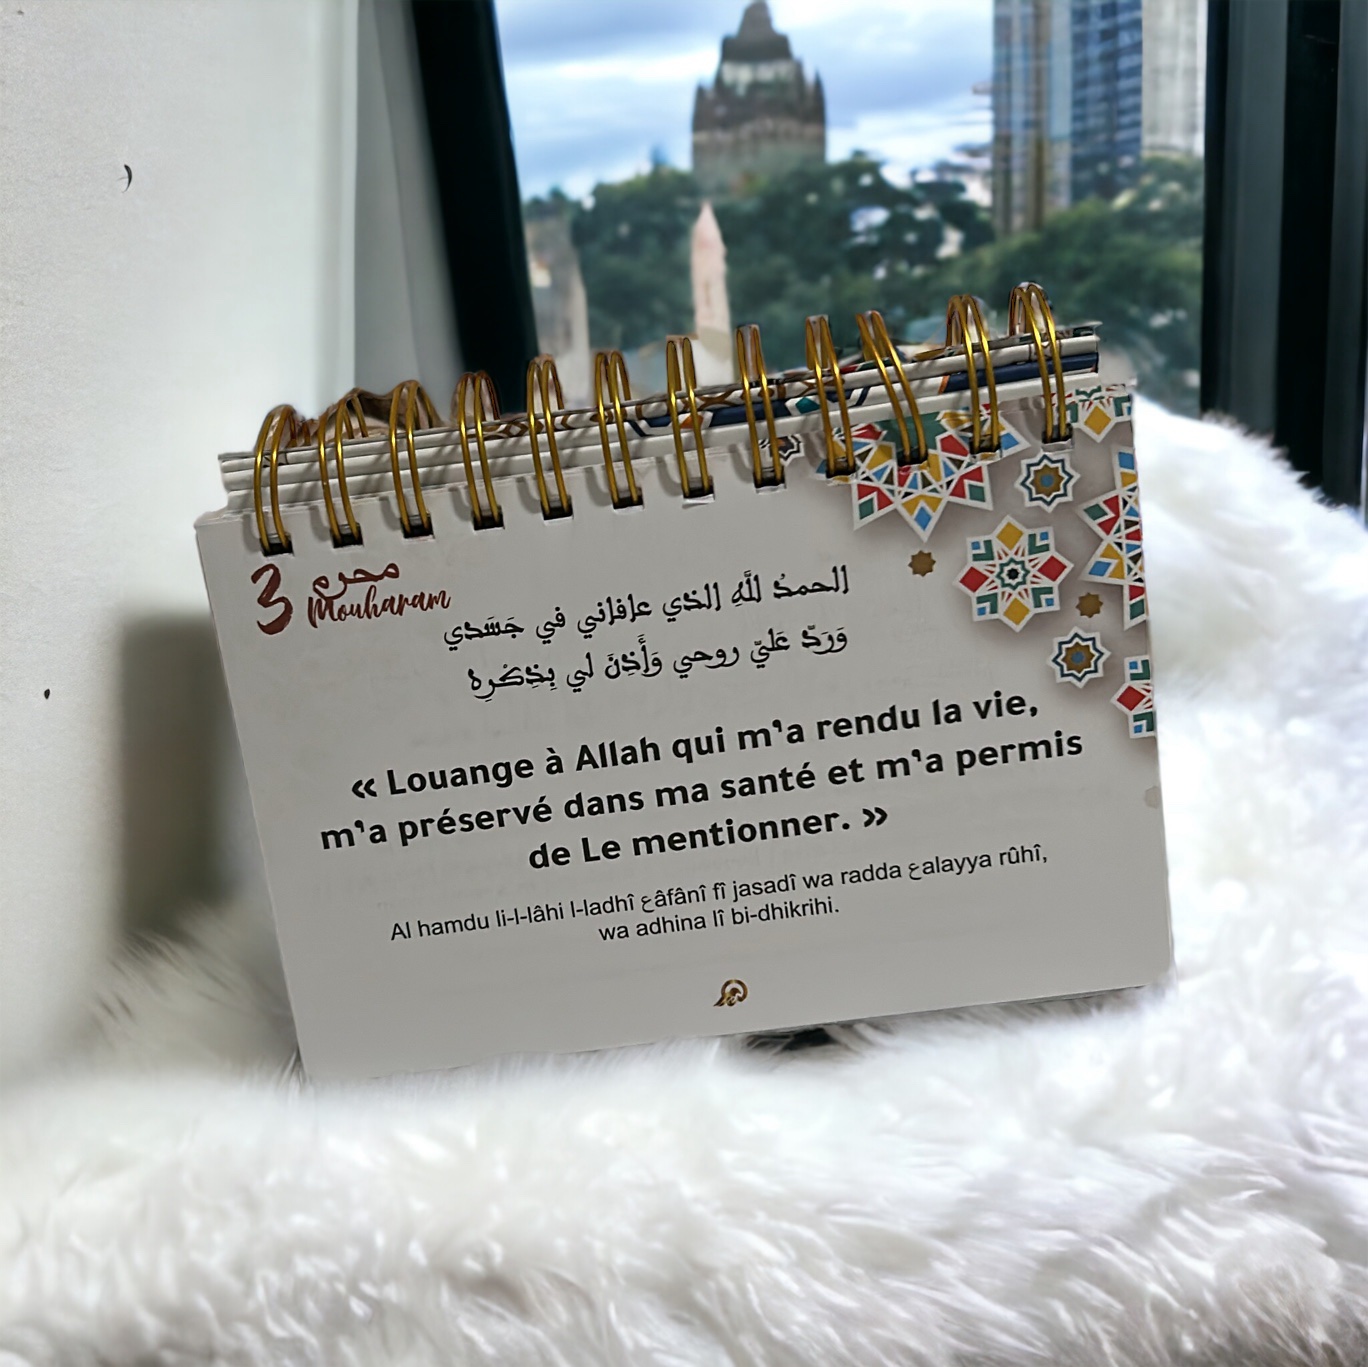 3 محرم
Mouharam
الحمدُ للَّهِ الذي عافاني في جَسَدي
وَرَدّ عَليّ روحي وَأَذِنَ لي بِذِكْرِه
« Louange à Allah qui m'a rendu la vie,
m'a préservé dans ma santé et m'a permis
de Le mentionner. »
Al hamdu li-l-lâhi l-ladhî عâfânî fî jasadî wa radda عalayya rûhî,
wa adhina lî bi-dhikrihi.